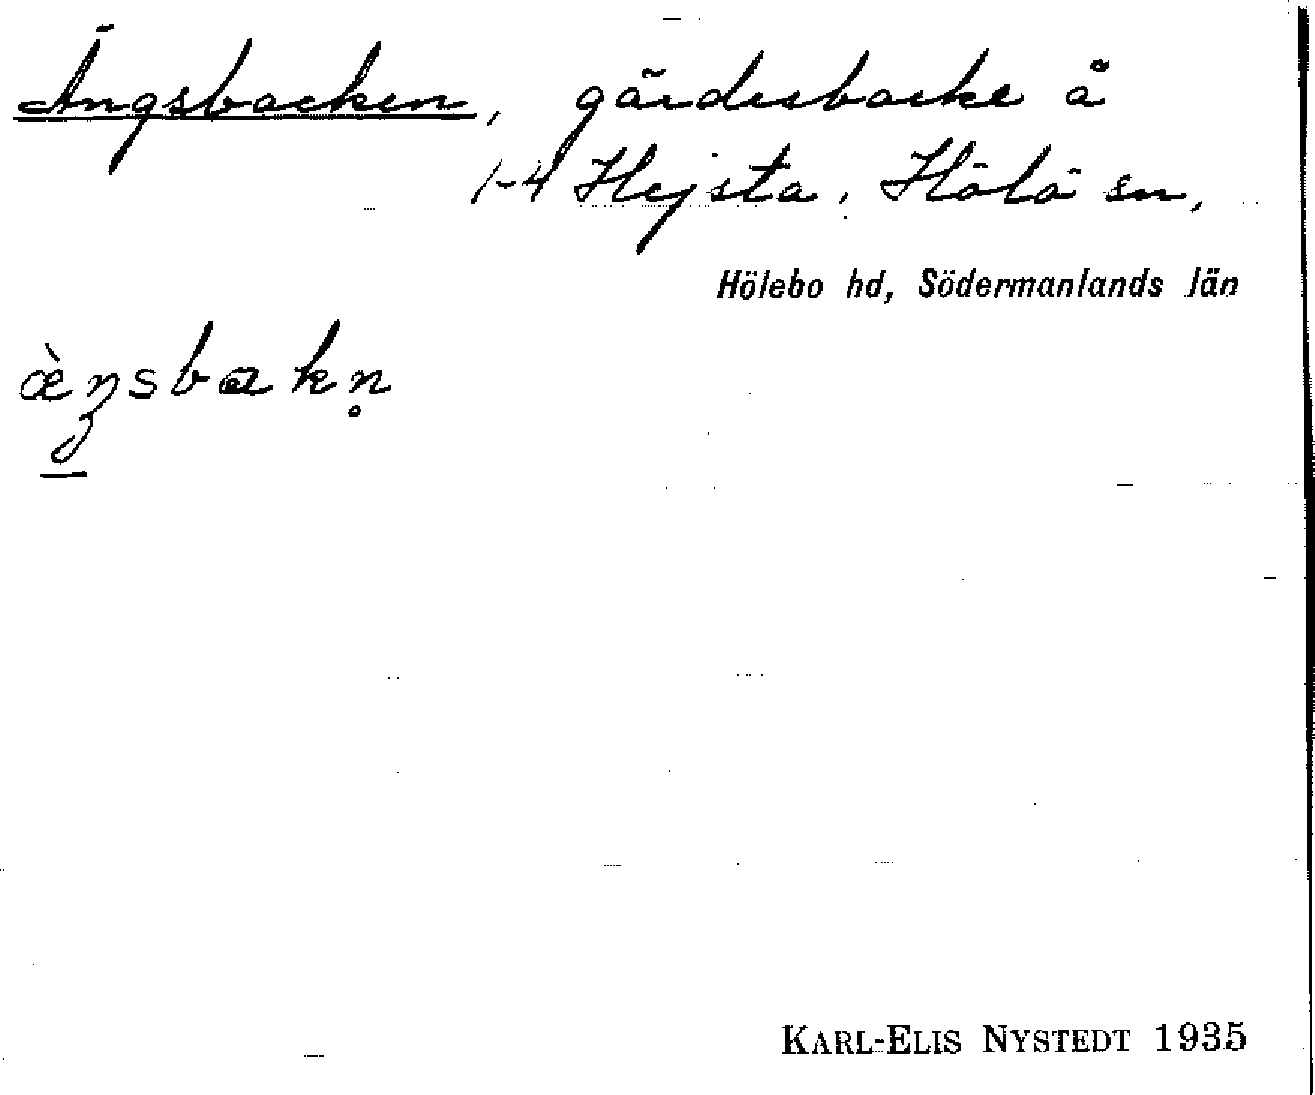 Ängsbacken, gärdesbacke å
1-4 Hejsta, Hölö sn,
Hölebo hd, Södermanlands län
æ̀ŋsbakn̥
KARL-ELIS NYSTEDT 1935